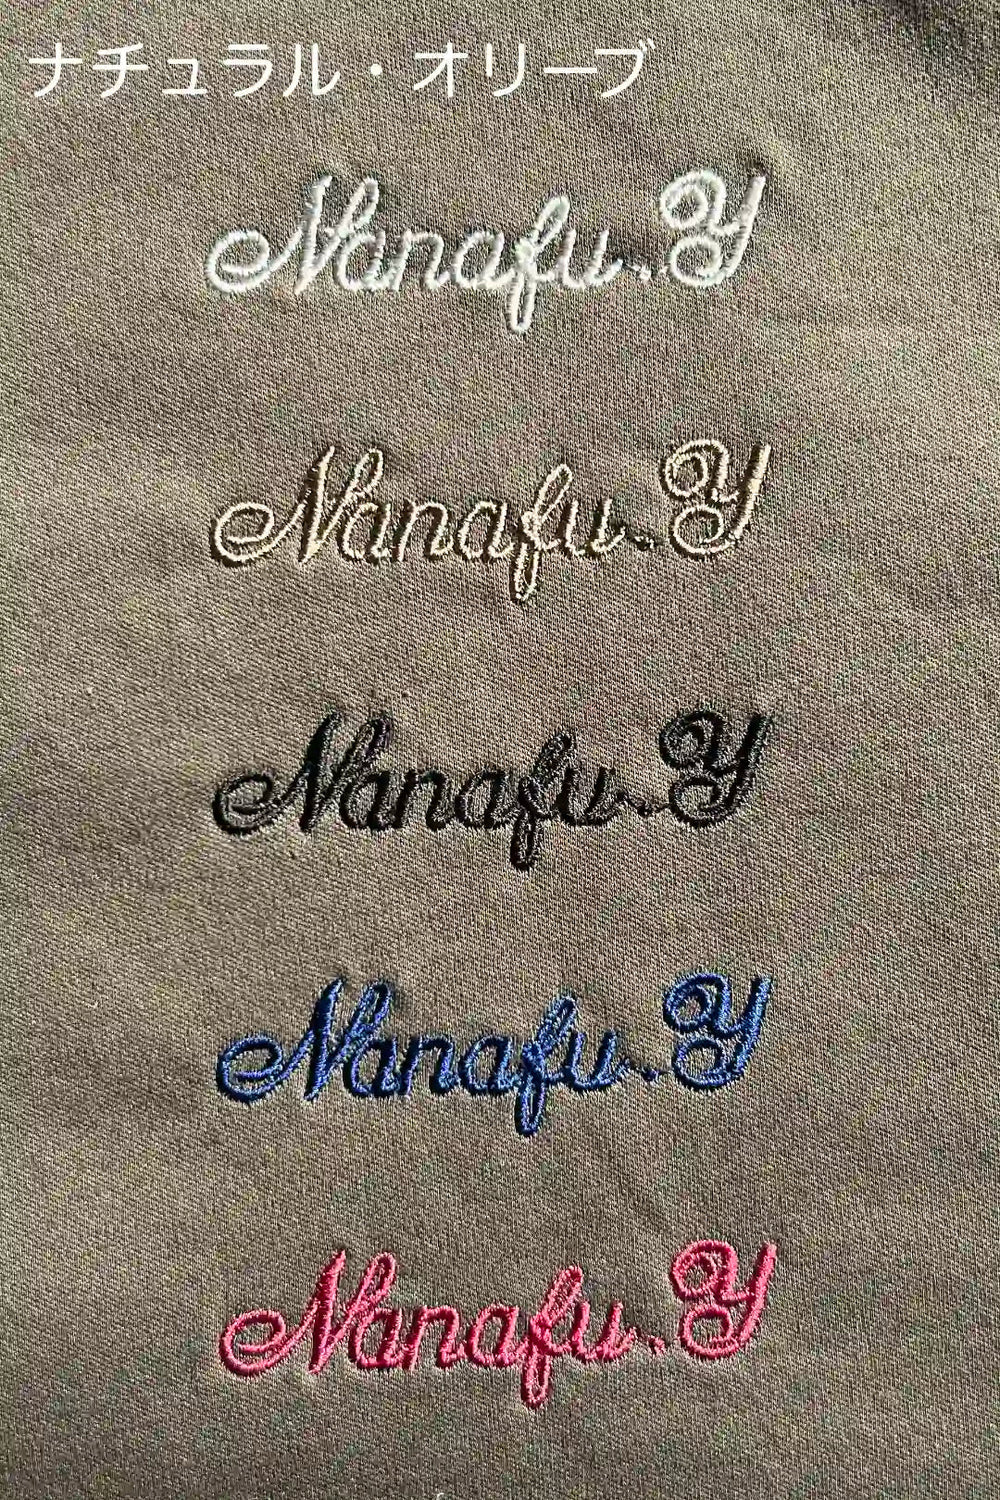 ナチュラル・オリーブ
Nanafu.Y
Nanafu.Y
Nanafu.Y
Nanafu.Y
Nanafu.Y